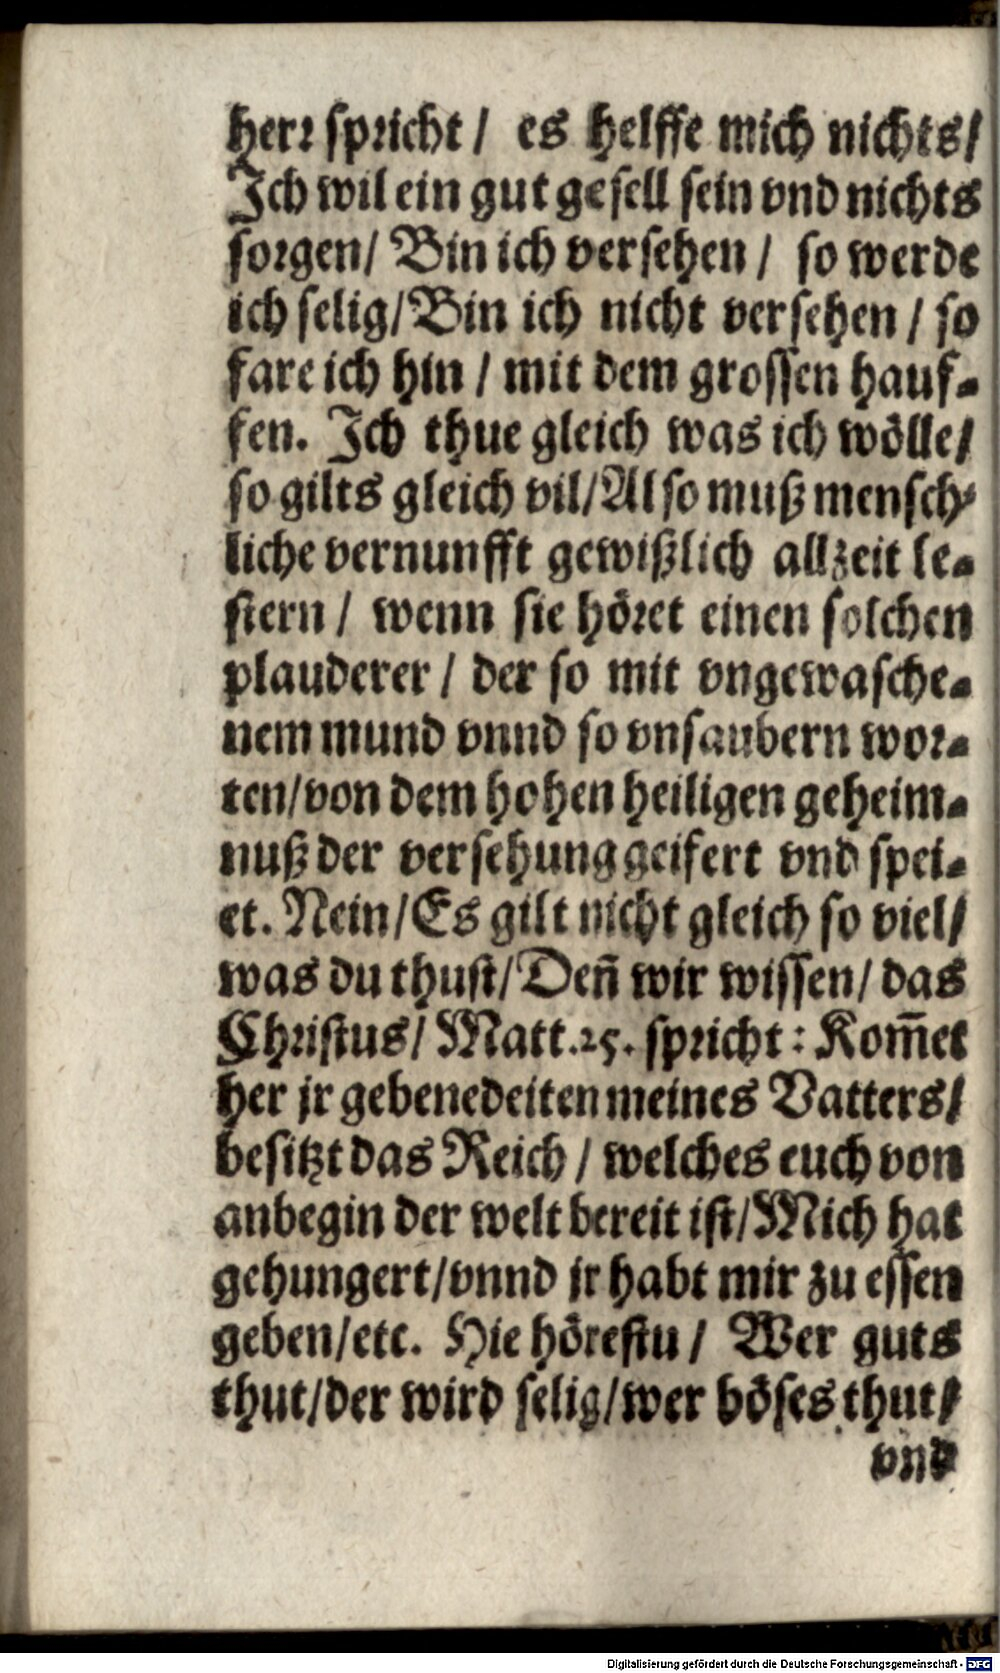 herr spricht / es helffe mich nichts/
Ich wil ein gut gesell sein vnd nichts
sorgen/ Bin ich versehen / so werde
ich selig/Bin ich nicht versehen / so
fare ich hin / mit dem grossen hauf-
fen. Ich thue gleich was ich wölle/
so gilts gleich vil/Also muß mensch-
liche vernunfft gewißlich allzeit le-
stern / wenn sie höret einen solchen
plauderer / der so mit vngewasche-
nem mund vnnd so vnsaubern wor-
ten/von dem hohen heiligen geheim-
nuß der versehung geifert vnd spei-
et. Nein/Es gilt nicht gleich so viel/
was du thust/Deñ wir wissen/ das
Christus/ Matt.25. spricht: Kom̃et
her jr gebenedeiten meines Vatters/
besitzt das Reich / welches euch von
anbegin der welt bereit ist/Mich hat
gehungert/vnnd jr habt mir zu essen
geben/etc. Hie hörestu / Wer guts
thut/der wird selig/wer böses thut/
vnd
Digitalisierung gefördert durch die Deutsche Forschungsgemeinschaft - DFG